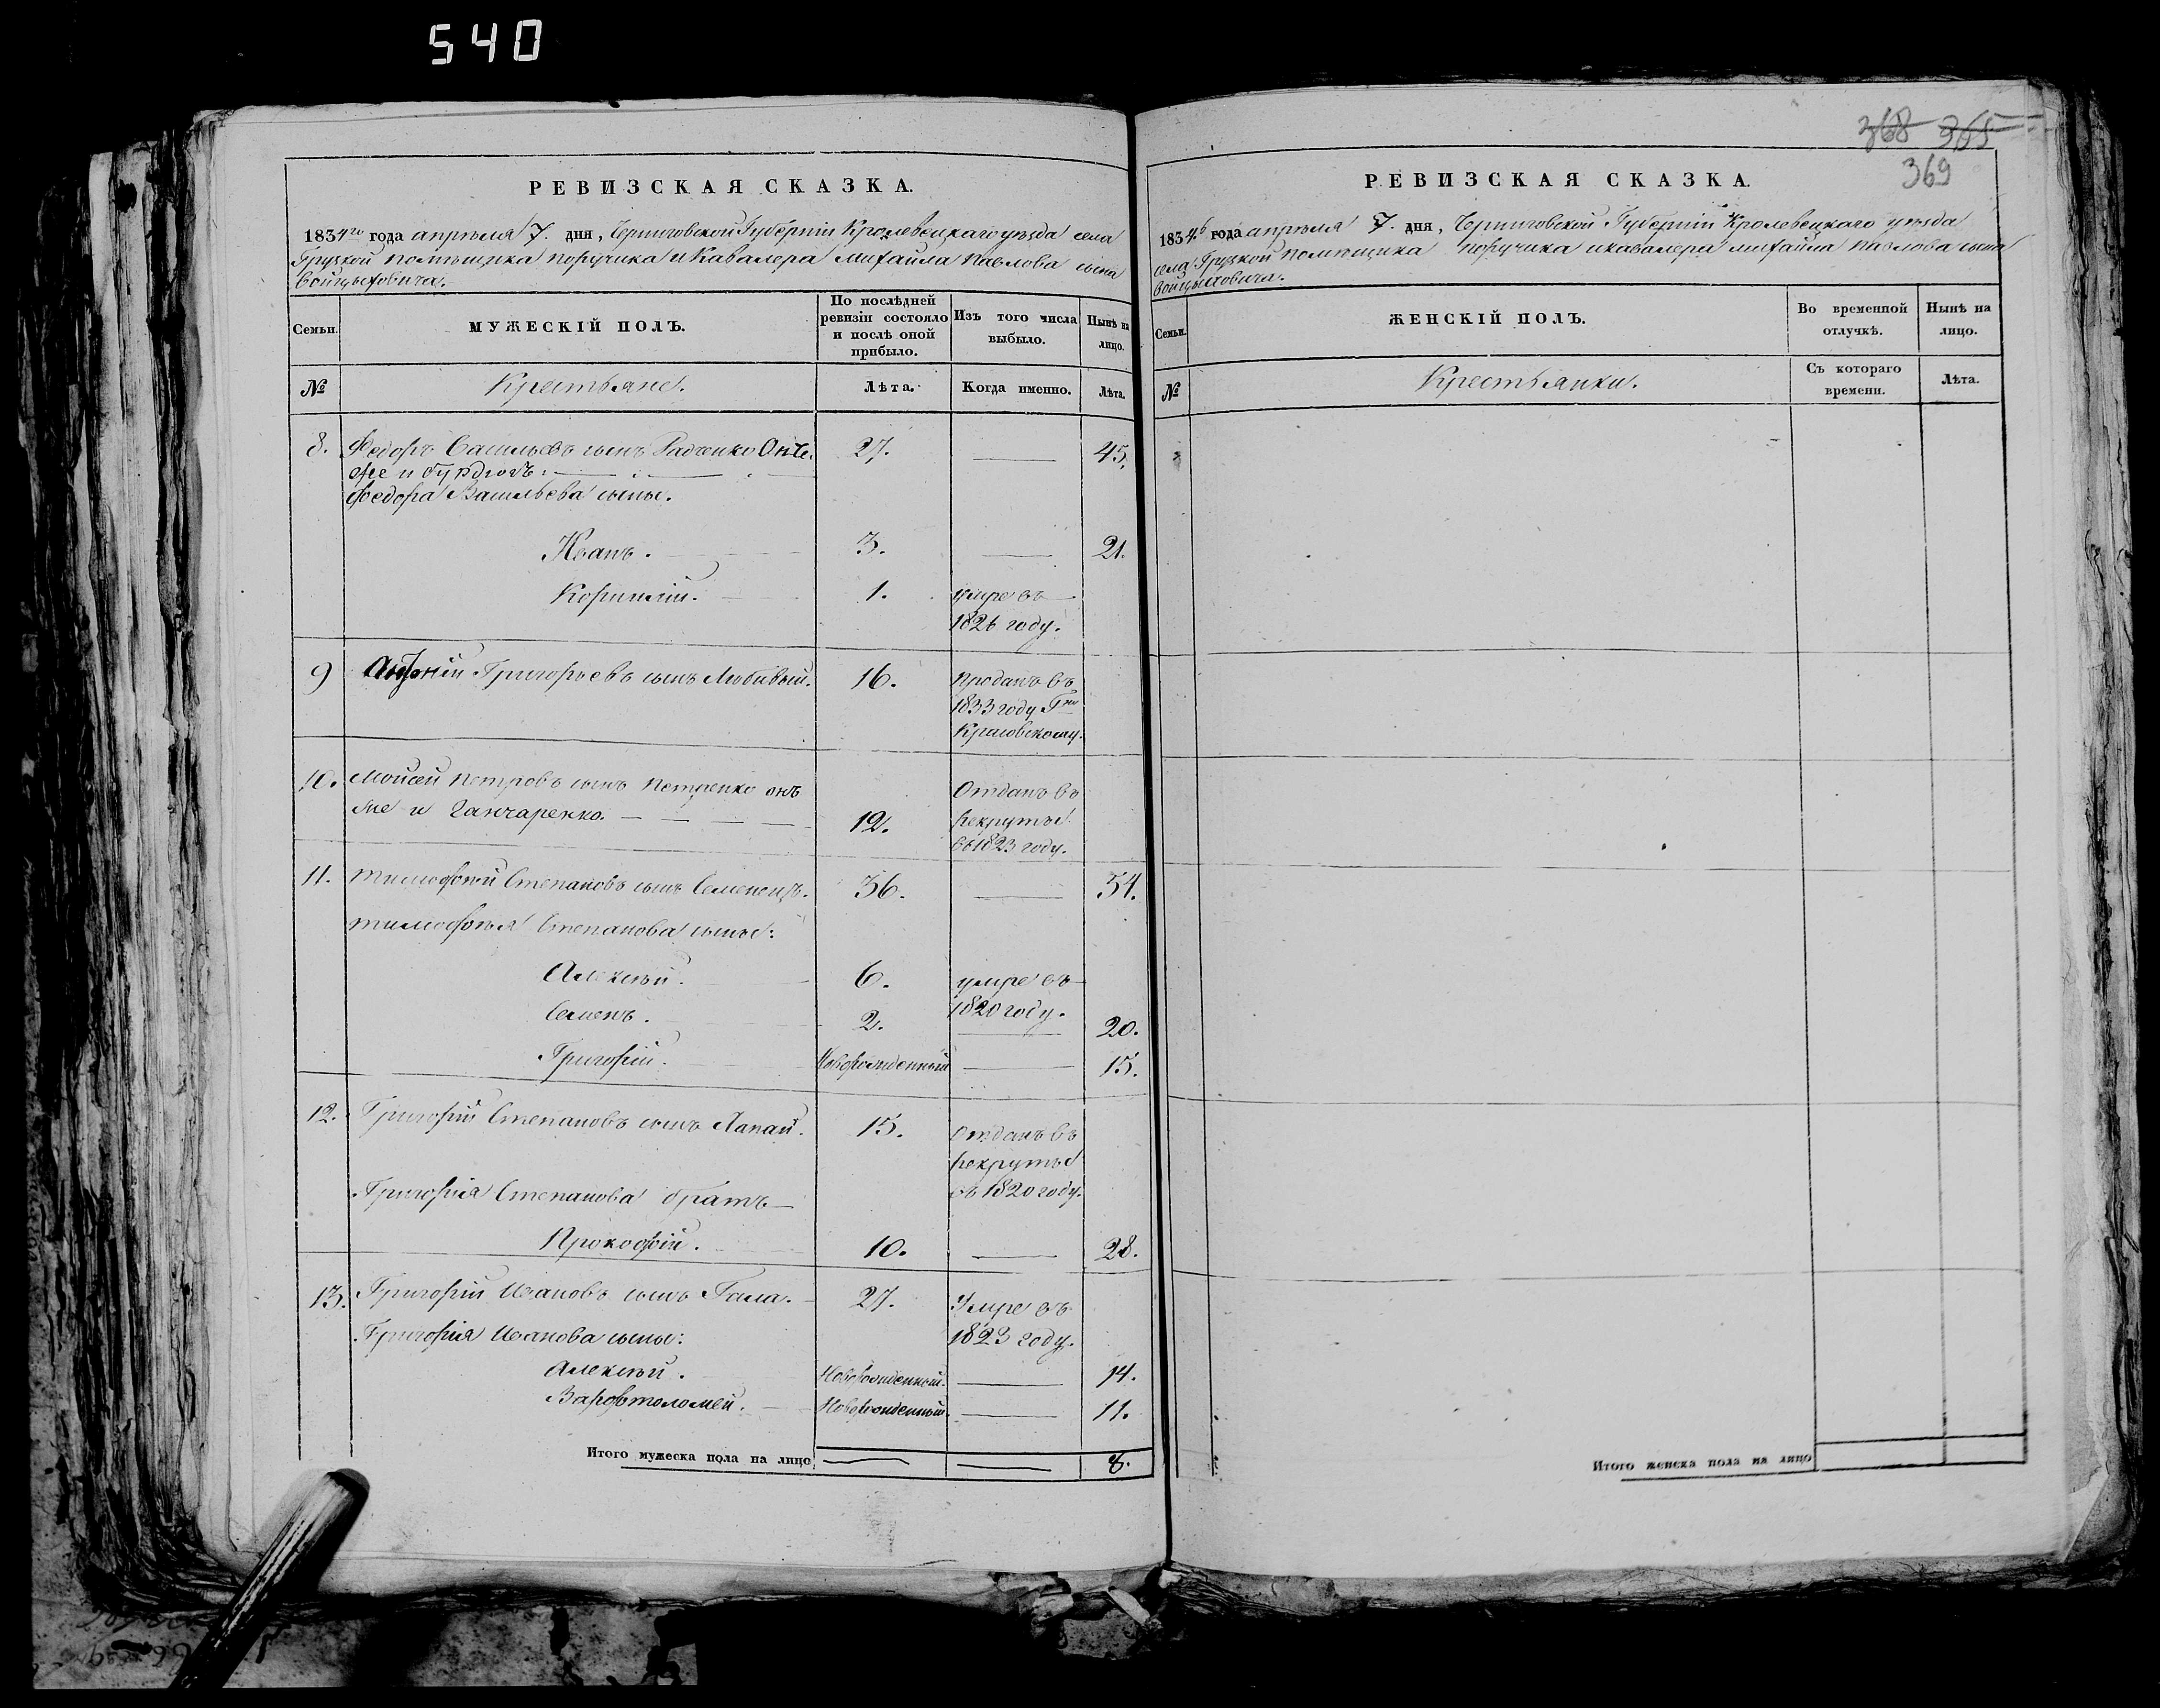 540
368 365
369
РЕВИЗСКАЯ СКАЗКА.
1834го года апрѣля 7. дня, Черниговской Губерніи Кролевецкаго уѣзда села
Грузкой помѣщика поручика и Кавалера Михайла Павлова сына
Войцеховича.
Семьи.
МУЖЕСКІЙ ПОЛЪ.
По послѣдней ревизіи состояло и послѣ оной прибыло.
Изъ того числа выбыло.
Нынѣ на лицо.
№
Крестьяне.
Лѣта.
Когда именно.
Лѣта.
8. Федоръ Васильевъ сынъ Радченко Онъ 27. — 45.
же и
Федора Васильева сыны.
Иванъ. 3. — 21.
Корнилій. 1. умре въ
1826 году.
9 Антоній Григорьевъ сынъ Любивый. 16. Проданъ въ
1833 году Гну
Красовскому.
10. Мойсей Петровъ сынъ Петренко онъ Отданъ въ
же и Ганчаренко. 12. рекруты
въ 1823 году.
11. Тимофѣй Степановъ сынъ Семенецъ. 36. — 54.
Тимофѣя Степанова сыны:
Алексѣй. 6. умре въ
1820 году.
Семенъ. 2. — 20.
Григорій. Новорожденный — 15.
12. Григорій Степановъ сынъ Лапай. 15. Отданъ въ
рекруты
въ 1820 году.
Григорія Степанова братъ
Прокофій. 10. — 28.
13. Григорій Ивановъ сынъ Гала. 27. Умре въ
1823 году.
Григорія Иванова сыны:
Алексѣй. Новорожденный. — 14.
Варфтоломей. Новорожденный. — 11.
Итого мужеска пола на лицо — — 8.
РЕВИЗСКАЯ СКАЗКА.
1834. года апрѣля 7. дня, Черниговской Губерніи Кролевецкаго уѣзда
села Грузкой помѣщика поручика и кавалера Михайла Павлова сына
Войцеховича.
Семьи.
ЖЕНСКІЙ ПОЛЪ.
Во временной отлучкѣ.
Нынѣ на лицо.
№
Крестьянки.
Съ котораго времени.
Лѣта.
Итого женска пола на лицо